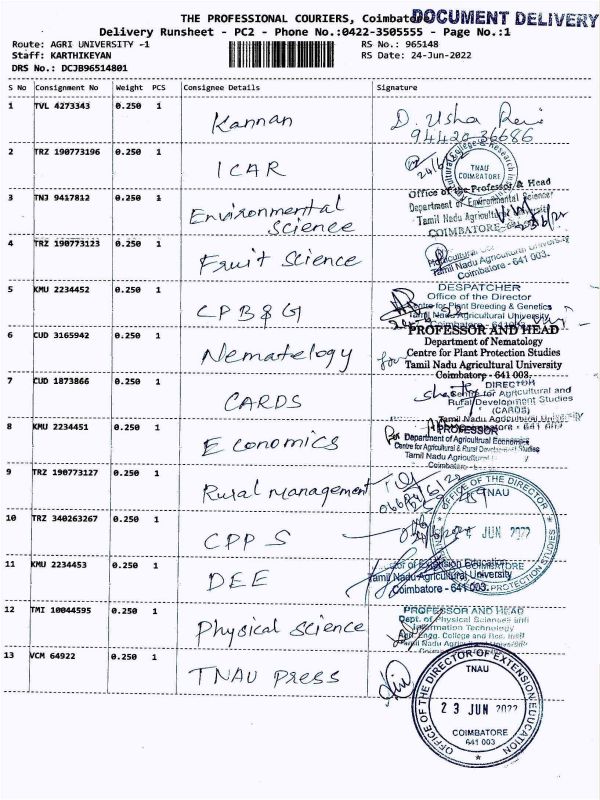 THE PROFESSIONAL COURIERS, Coimbatore
DOCUMENT DELIVERY
Delivery Runsheet - PC2 - Phone No.:0422-3505555 - Page No.:1
Route: AGRI UNIVERSITY -1
RS No.: 965148
Staff: KARTHIKEYAN
RS Date: 24-Jun-2022
DRS No.: DCJB96514801
S No Consignment No Weight PCS Consignee Details Signature
1 TVL 4273343 0.250 1 Kannan D. Usha Rani
9442036686
2 TRZ 190773196 0.250 1 ICAR
TNAU
COIMBATORE
Office of the Professor & Head
3 TNJ 9417812 0.250 1 Environmental Science
Department of Environmental Sciences
Tamil Nadu Agricultural
COIMBATORE
4 TRZ 190773123 0.250 1 Fruit Science
Tamil Nadu Agricultural University
Coimbatore - 641 003.
5 KMU 2234452 0.250 1 CPB&G
DESPATCHER
Office of the Director
Centre for Plant Breeding & Genetics
Tamil Nadu Agricultural University
6 CUD 3165942 0.250 1 Nematelogy
PROFESSOR AND HEAD
Department of Nematology
Centre for Plant Protection Studies
for Tamil Nadu Agricultural University
Coimbatore - 641 003.
7 CUD 1873866 0.250 1 CARDS
DIRECTOR
Centre for Agricultural and
Rural Development Studies
(CARDS)
Tamil Nadu Agricultural University
8 KMU 2234451 0.250 1 Economics
PROFESSOR
Department of Agricultrual Economics
Centre for Agricultural & Rural Development Studies
Tamil Nadu Agricultural
Coimbatore
9 TRZ 190773127 0.250 1 Rural management
OFFICE OF THE DIRECTOR
TNAU
10 TRZ 340263267 0.250 1 CPPS
JUN 2022
PROTECTION STUDIES
11 KMU 2234453 0.250 1 DEE
Director of Extension Education
COIMBATORE
Tamil Nadu Agricultural University
Coimbatore - 641 003.
12 TMI 10044595 0.250 1 Physical Science
PROFESSOR AND HEAD
Dept. of Physical Sciences and
Information Technology
Agrl. Engg. College and Res. Instt
Tamil Nadu Agricultural University
13 VCM 64922 0.250 1 TNAU PRESS
OFFICE OF THE DIRECTOR OF EXTENSION EDUCATION
TNAU
23 JUN 2022
COIMBATORE
641 003